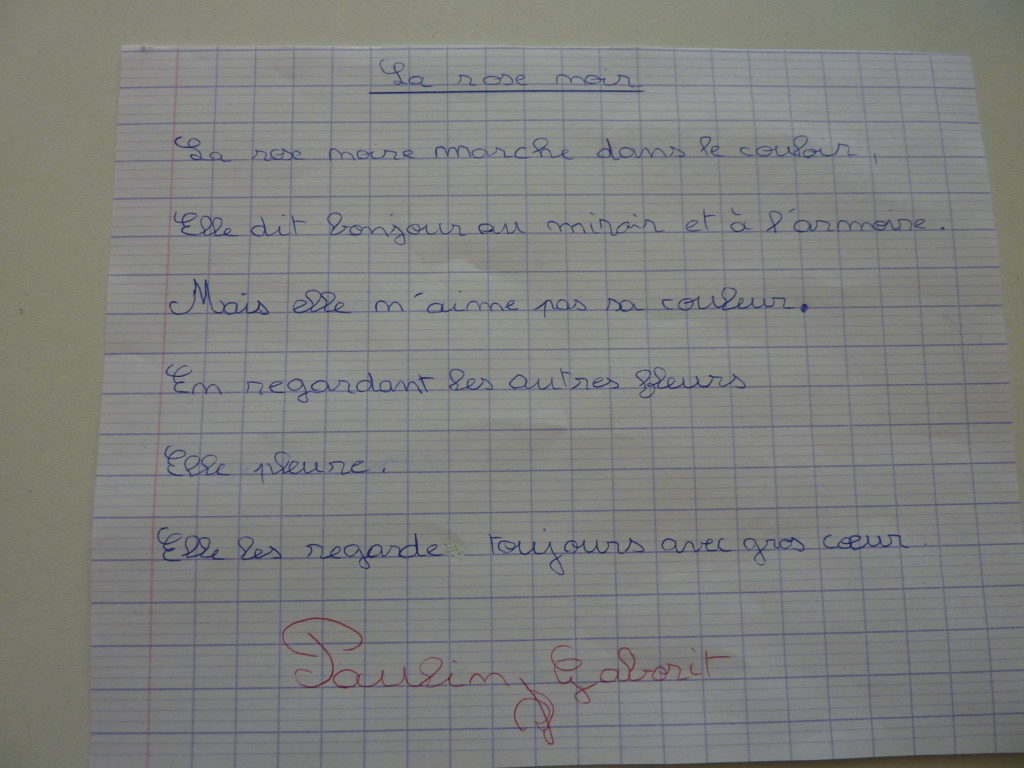 La rose noir
La rose noire marche dans le couloir,
Elle dit bonjour au miroir et à l'armoire.
Mais elle n'aime pas sa couleur.
En regardant les autres fleurs
Elle pleure.
Elle les regarde toujours avec gros cœur.
Paulin Gaborit